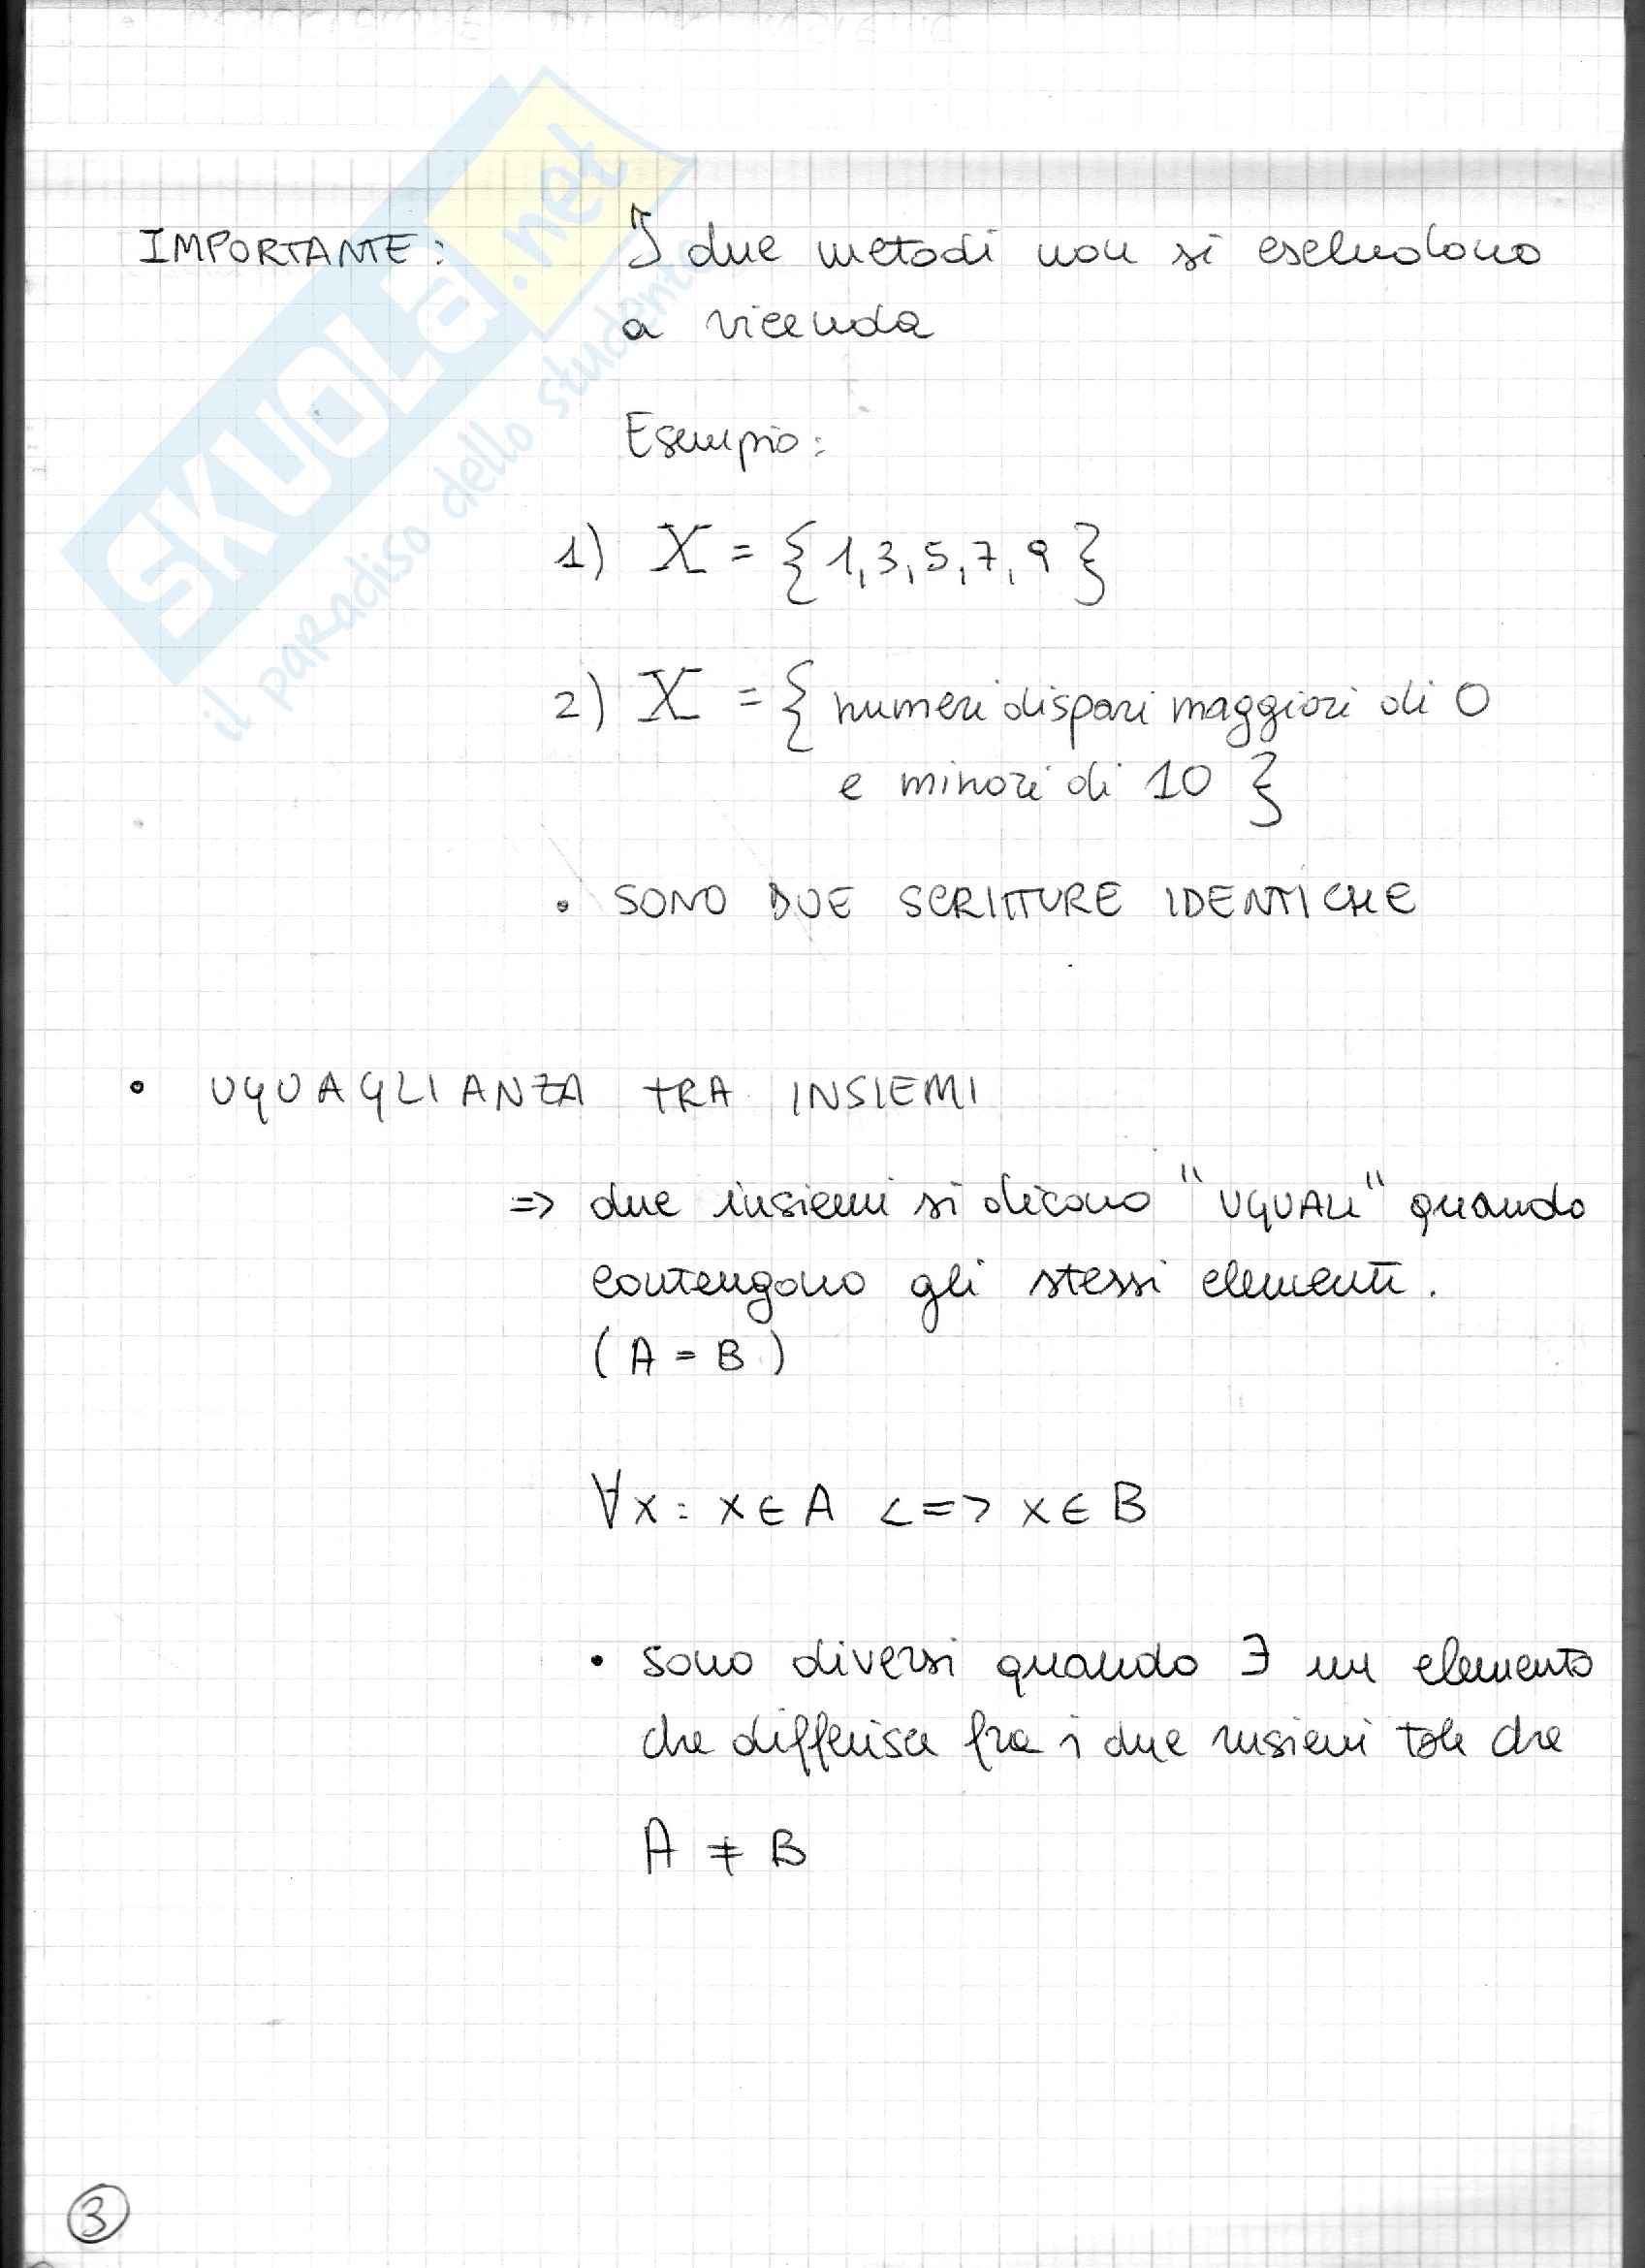 IMPORTANTE: I due metodi non si escludono
a vicenda
Esempio:
1) X = { 1, 3, 5, 7, 9 }
2) X = { numeri dispari maggiori di 0
e minori di 10 }
• SONO DUE SCRITTURE IDENTICHE
• UGUAGLIANZA TRA INSIEMI
=> due insiemi si dicono "UGUALI" quando
contengono gli stessi elementi.
(A = B)
∀x: x ∈ A <=> x ∈ B
• sono diversi quando ∃ un elemento
che differisce fra i due insiemi tale che
A ≠ B
3
SKUOLA.net
il paradiso dello studente